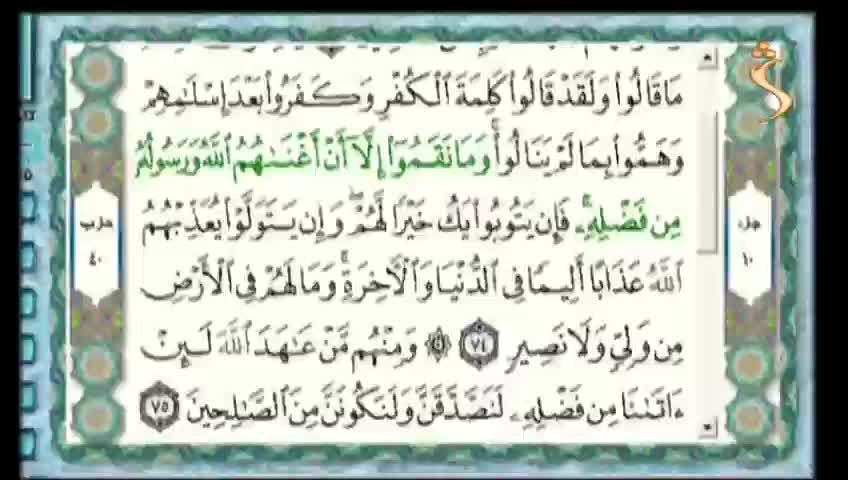 مَا قَالُوا۟ وَلَقَدْ قَالُوا۟ كَلِمَةَ ٱلْكُفْرِ وَكَفَرُوا۟ بَعْدَ إِسْلَٰمِهِمْ
وَهَمُّوا۟ بِمَا لَمْ يَنَالُوا۟ ۚ وَمَا نَقَمُوٓا۟ إِلَّآ أَنْ أَغْنَىٰهُمُ ٱللَّهُ وَرَسُولُهُۥ
مِن فَضْلِهِۦ ۚ فَإِن يَتُوبُوا۟ يَكُ خَيْرًا لَّهُمْ ۖ وَإِن يَتَوَلَّوْا۟ يُعَذِّبْهُمُ
ٱللَّهُ عَذَابًا أَلِيمًا فِى ٱلدُّنْيَا وَٱلْءَاخِرَةِ ۚ وَمَا لَهُمْ فِى ٱلْأَرْضِ
مِن وَلِىٍّ وَلَا نَصِيرٍ ٧٤ ۞ وَمِنْهُم مَّنْ عَٰهَدَ ٱللَّهَ لَئِنْ
ءَاتَىٰنَا مِن فَضْلِهِۦ لَنَصَّدَّقَنَّ وَلَنَكُونَنَّ مِنَ ٱلصَّٰلِحِينَ ٧٥
جزء
١٠
حزب